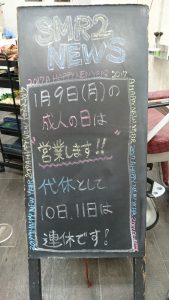 SMR2
NEWS
2017 A HAPPY NEW YEAR 2017
1月9日(月)の
成人の日は
営業します!!
代休として
10日、11日は
連休です!